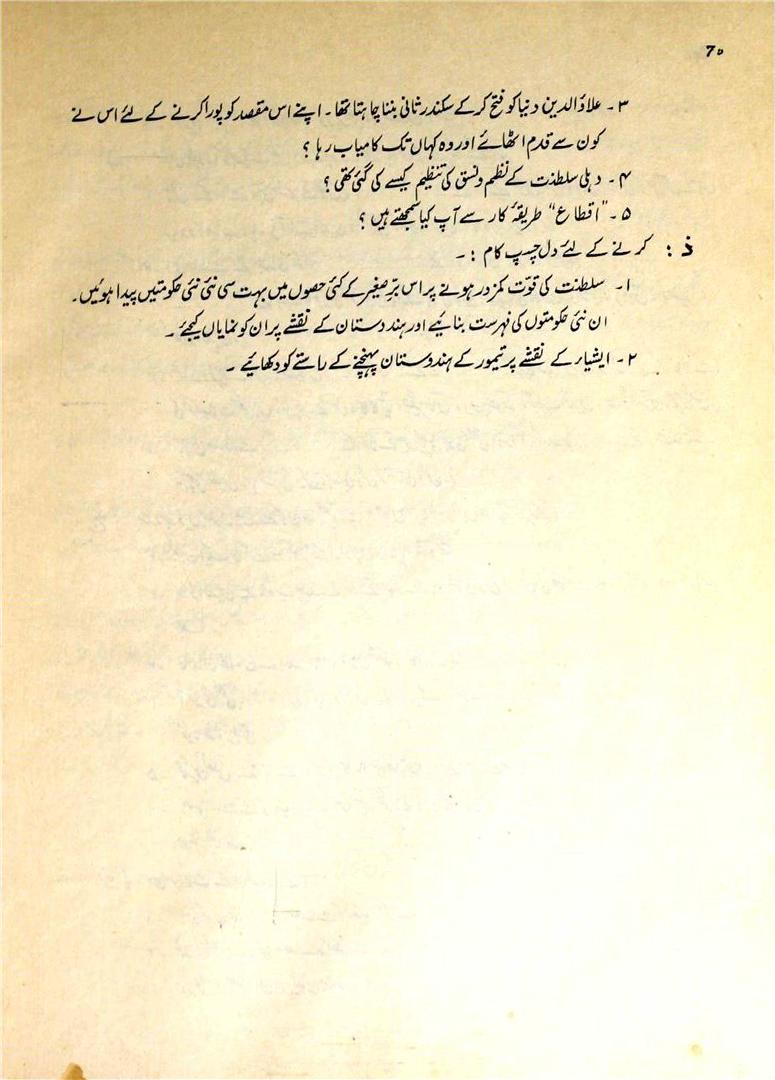 70
۳ - علاؤالدین دنیا کو فتح کرکے سکندر ثانی بننا چاہتا تھا۔ اپنے اس مقصد کو پورا کرنے کے لئے اس نے
کون سے قدم اٹھائے اور وہ کہاں تک کامیاب رہا ؟
۴ - دہلی سلطنت کے نظم ونسق کی تنظیم کیسے کی گئی تھی ؟
۵ - "اقطاع" طریقۂ کار سے آپ کیا سمجھتے ہیں ؟
ذ : کرنے کے لئے دل چسپ کام : ۔
۱ - سلطنت کی قوّت کمزور ہونے پر اس برّصغیر کے کئی حصوں میں بہت سی نئی نئی حکومتیں پیدا ہوئیں۔
ان نئی حکومتوں کی فہرست بنائیے اور ہندوستان کے نقشے پر ان کو نمایاں کیجئے ۔
۲ - ایشیار کے نقشے پر تیمور کے ہندوستان پہنچنے کے راستے کو دکھائیے ۔